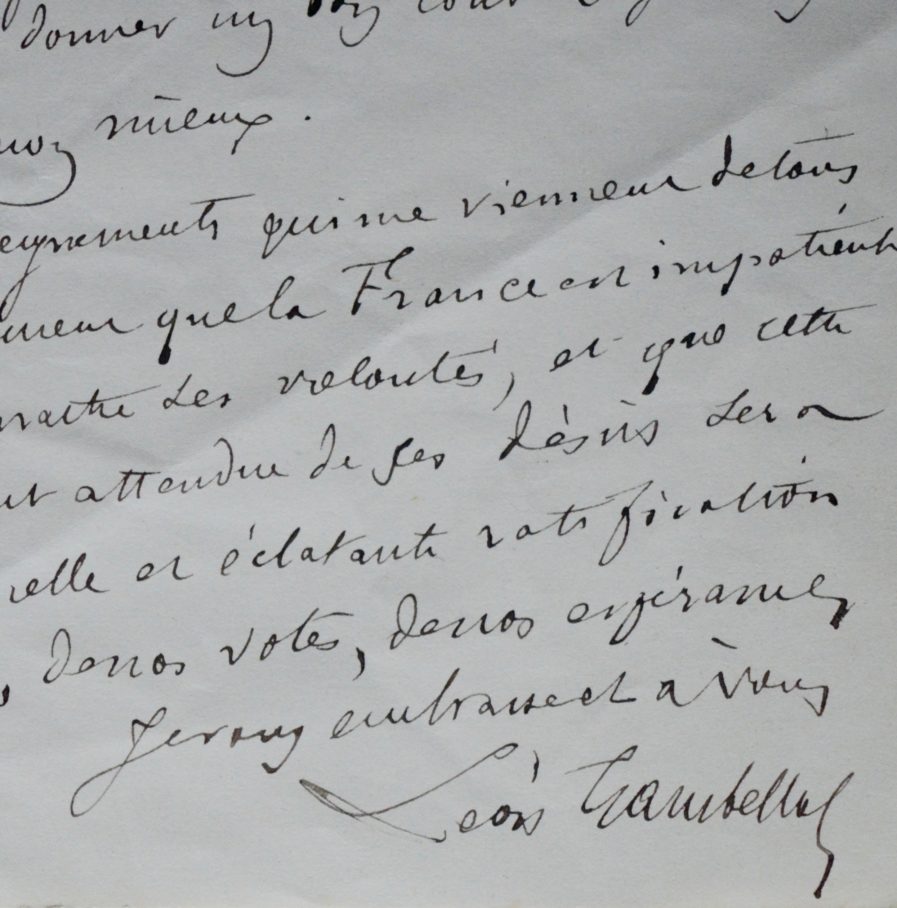 donner un
mieux.
eignements qui me viennent de tous
que la France est impatiente
ses volontés, et que cette
attendue de ses désirs sera
elle et éclatante ratification
, de nos votes, de nos espérances
Je vous embrasse et à vous
Léon Gambetta